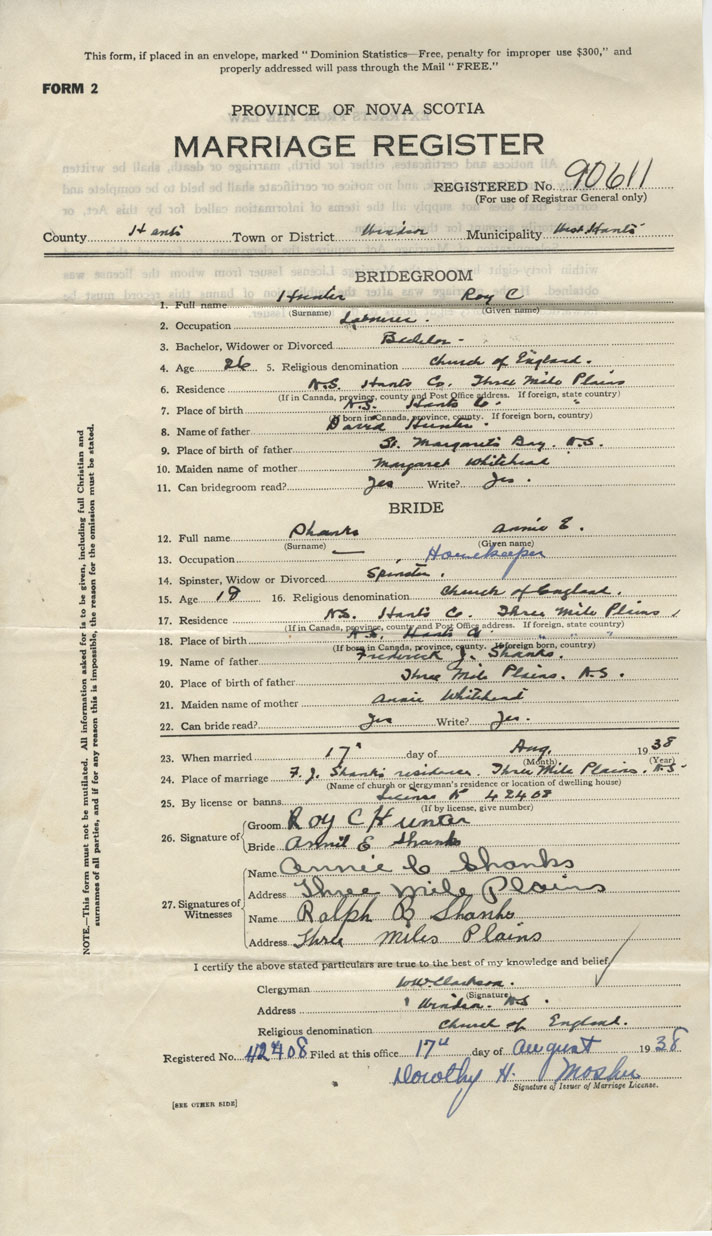 This form, if placed in an envelope, marked "Dominion Statistics—Free, penalty for improper use $300," and
properly addressed will pass through the Mail "FREE."
FORM 2
PROVINCE OF NOVA SCOTIA
MARRIAGE REGISTER
REGISTERED No. 90611
(For use of Registrar General only)
County Hants Town or District Windsor Municipality West Hants
BRIDEGROOM
1. Full name Hunter Roy C
(Surname) (Given name)
2. Occupation Labourer.
3. Bachelor, Widower or Divorced Bachelor -
4. Age 26 5. Religious denomination Church of England.
6. Residence N.S. Hants Co. Three Mile Plains
(If in Canada, province, county and Post Office address. If foreign, state country)
7. Place of birth N.S. Hants Co. "
(If born in Canada, province, county. If foreign born, country)
8. Name of father David Hunter.
9. Place of birth of father St. Margarets Bay. N.S.
10. Maiden name of mother Margaret Whitehead
11. Can bridegroom read? Yes Write? Yes.
BRIDE
12. Full name Shanks Annie E.
(Surname) (Given name)
13. Occupation Housekeeper
14. Spinster, Widow or Divorced Spinster.
15. Age 19 16. Religious denomination Church of England.
17. Residence N.S. Hants Co. Three Mile Plains
(If in Canada, province, county and Post Office address. If foreign, state country)
18. Place of birth N.S. Hants Co. " " "
(If born in Canada, province, county. If foreign born, country)
19. Name of father Frederick J. Shanks.
20. Place of birth of father Three Mile Plains. N.S.
21. Maiden name of mother Annie Whitehead
22. Can bride read? Yes Write? Yes.
23. When married 17" day of Aug. 1938
(Month) (Year)
24. Place of marriage F. J. Shanks residence. Three Mile Plains. N.S.
(Name of church or clergyman's residence or location of dwelling house)
25. By license or banns License No 42408
(If by license, give number)
26. Signature of Groom Roy C Hunter
Bride Annie E Shanks
27. Signatures of Witnesses Name Annie C Shanks
Address Three Mile Plains
Name Ralph B Shanks
Address Three Miles Plains
I certify the above stated particulars are true to the best of my knowledge and belief
Clergyman W.W. Clarkson.
(Signature)
Address Windsor. N.S.
Religious denomination Church of England.
Registered No. 42408 Filed at this office 17" day of August 1938
Dorothy H. Mosher
Signature of Issuer of Marriage License.
[SEE OTHER SIDE]
NOTE.—This form must not be mutilated. All information asked for is to be given, including full Christian and
surnames of all parties, and if for any reason this is impossible, the reason for the omission must be stated.